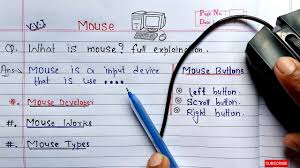 Mouse
Page No.
Date
Q. What is mouse? full explaination.
Ans→ Mouse is a input device
that is use ....
#. Mouse Developer
#. Mouse Works
#. Mouse Types
Mouse Buttons
Left button.
Scroll button.
Right button.
SUBSCRIBE